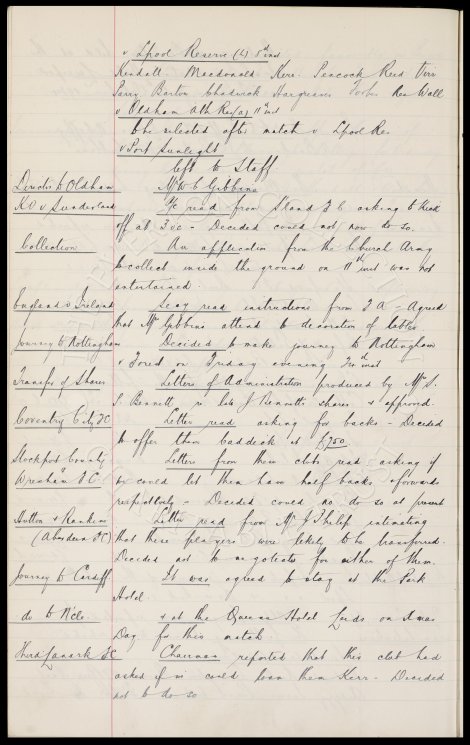 v Lpool Reserve (h) 5th inst
Kendall Macdonald Kerr Peacock Reid Virr
Parry Barton Chadwick Hargreaves Forbes Res Wall
v Oldham Ath Res (a) 11th inst
to be selected after match v Lpool Res
v Port Sunlight
left to Staff
Director to Oldham Mr W C Gibbins
KO v Sunderland P/c read from Sland F C asking to kick
off at 3 o/c - Decided could not now do so.
Collection An application from the Church Army
to collect inside the ground on 11th inst was not
entertained.
England v Ireland Secy read instructions from F A - Agreed
that Mr Gibbins attend to decoration of tables.
Journey to Nottingham Decided to make journey to Nottingham
v Forest on Friday evening
Transfer of Shares Letters of Administration produced by Mr S.
S. Bennett, re late J Bennett's shares & approved.
Coventry City FC Letter read asking for backs - Decided
to offer them Caddick at £750
Stockport County Letters from these clubs read asking if
Wrexham FC we could let them have half backs & forwards
respectively - Decided could no do so at present
Hutton & Rankin Letter read from Mr J Philip intimating
(Aberdeen FC) that these players were likely to be transferred.
Decided not to negotiate for either of them.
Journey to Cardiff It was agreed to stay at the Park
Hotel
do to N'cle. & at the Queens Hotel Leeds on Xmas
Day for this match
Third Lanark FC Chairman reported that this club had
asked if we could loan them Kerr - Decided
not to do so